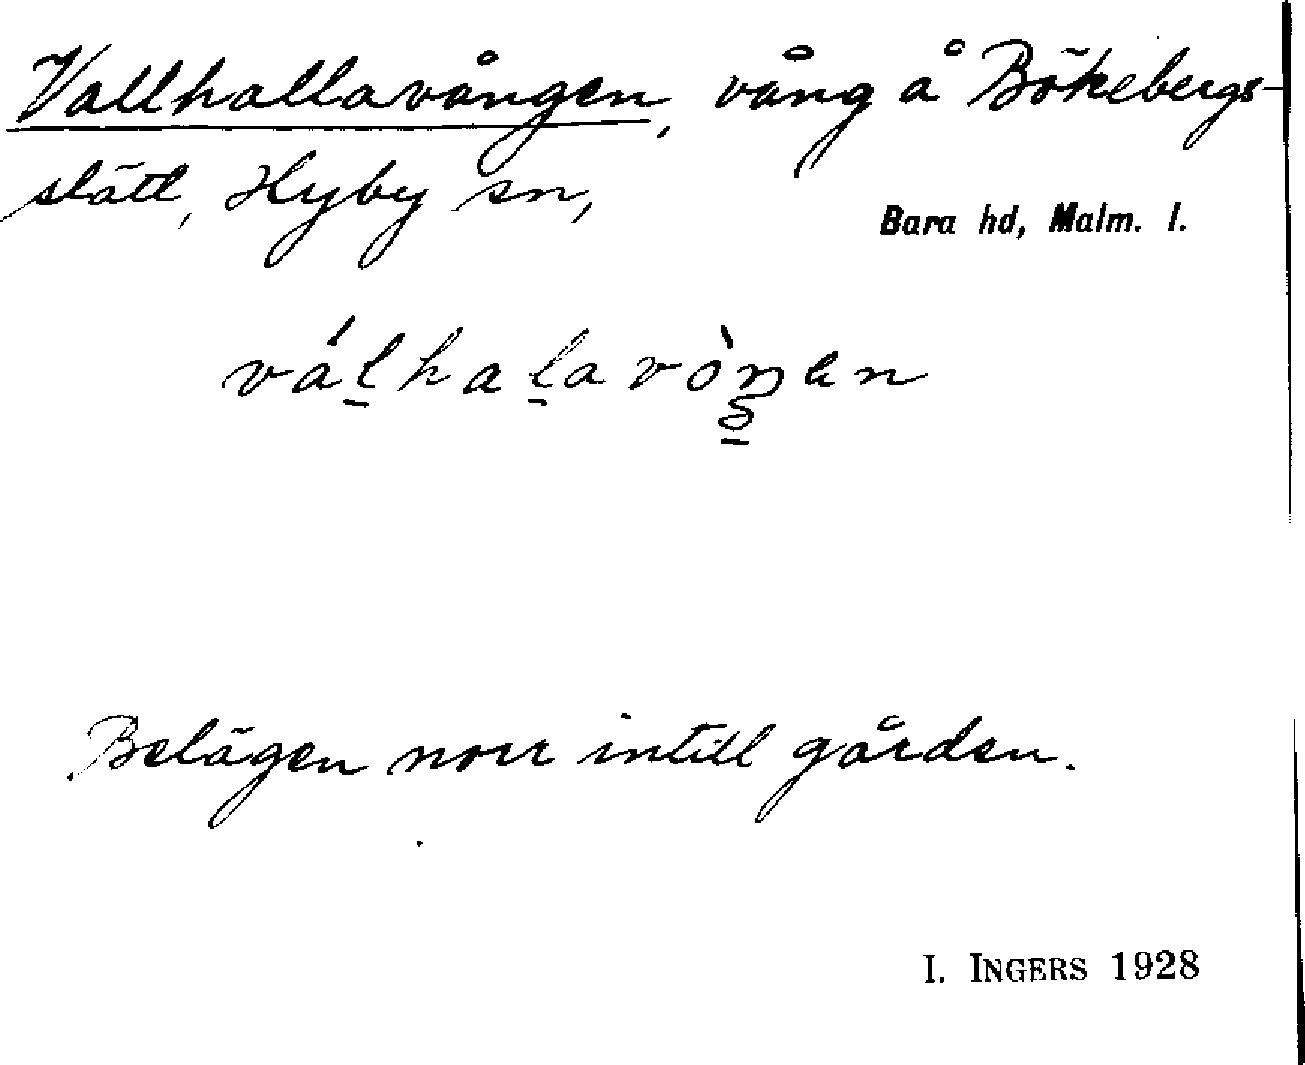 Vallhallavången, vång å Bökebergs-
slätt, Hyby sn,
Bara hd, Malm. l.
válhalavòŋen
Belägen norr intill gården.
I. INGERS 1928